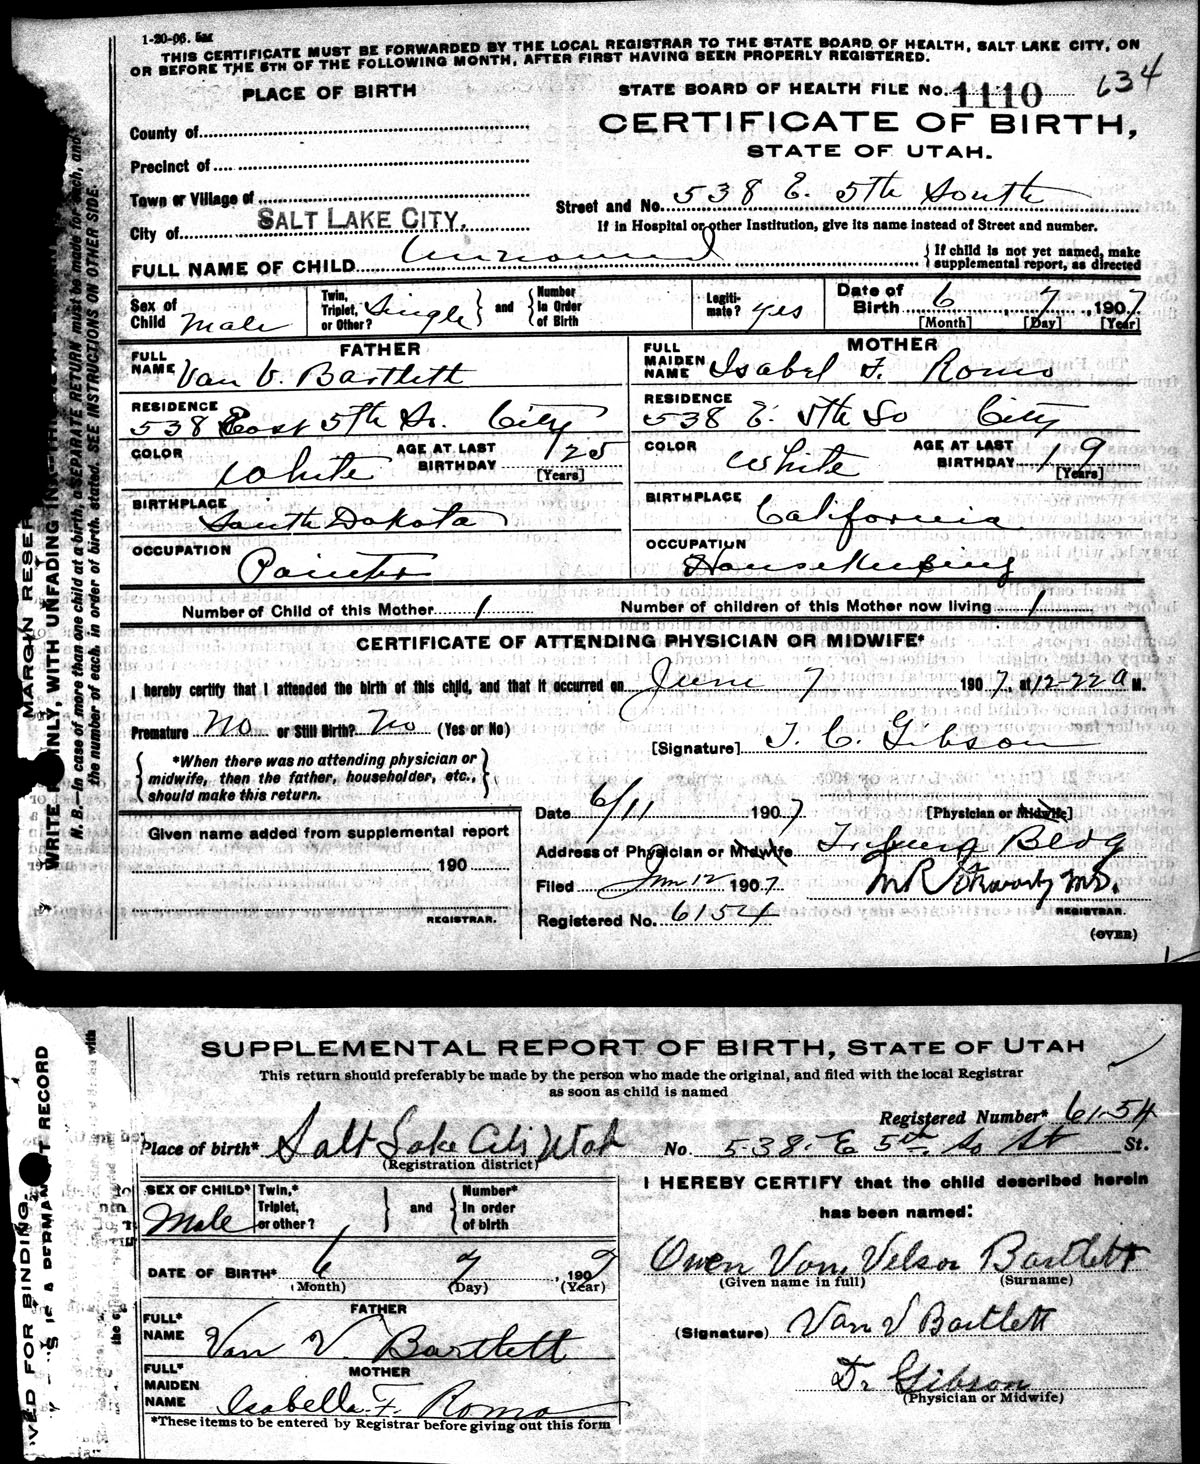 1-20-06. 5M
THIS CERTIFICATE MUST BE FORWARDED BY THE LOCAL REGISTRAR TO THE STATE BOARD OF HEALTH, SALT LAKE CITY, ON
OR BEFORE THE 5TH OF THE FOLLOWING MONTH, AFTER FIRST HAVING BEEN PROPERLY REGISTERED.
PLACE OF BIRTH
STATE BOARD OF HEALTH FILE No. 1110 634
CERTIFICATE OF BIRTH,
STATE OF UTAH.
County of
Precinct of
Town or Village of
City of SALT LAKE CITY.
Street and No. 538 E. 5th South
If in Hospital or other Institution, give its name instead of Street and number.
FULL NAME OF CHILD Unnamed
{ If child is not yet named, make
supplemental report, as directed
Sex of Child Male
Twin, Triplet, or Other? Single } and { Number in Order of Birth
Legiti-mate? yes
Date of Birth 6 7, 1907
[Month] [Day] [Year]
FATHER
FULL NAME Van V. Bartlett
RESIDENCE 538 East 5th So. City
COLOR White AGE AT LAST BIRTHDAY 25 [Years]
BIRTHPLACE South Dakota
OCCUPATION Painter
MOTHER
FULL MAIDEN NAME Isabel F. Romo
RESIDENCE 538 E. 5th So City
COLOR White AGE AT LAST BIRTHDAY 19 [Years]
BIRTHPLACE California
OCCUPATION Housekeeping
Number of Child of this Mother 1 Number of children of this Mother now living 1
CERTIFICATE OF ATTENDING PHYSICIAN OR MIDWIFE*
I hereby certify that I attended the birth of this child, and that it occurred on June 7 1907, at 12-22 a M.
Premature No or Still Birth? No (Yes or No)
[Signature] T. C. Gibson
{ *When there was no attending physician or
midwife, then the father, householder, etc.,
should make this return. }
[Physician or Midwife]
Date 6/11 1907
Address of Physician or Midwife Bldg
Filed Jun 12 1907 M.D.
REGISTRAR.
Registered No. 6154
(OVER)
Given name added from supplemental report
190
REGISTRAR.
WRITE PLAINLY, WITH UNFADING INK
N. B.—In case of more than one child at a birth, a SEPARATE RETURN must be made for each, and
the number of each, in order of birth, stated. SEE INSTRUCTIONS ON OTHER SIDE.
SUPPLEMENTAL REPORT OF BIRTH, STATE OF UTAH
This return should preferably be made by the person who made the original, and filed with the local Registrar
as soon as child is named
Registered Number* 6154
Place of birth* Salt Lake City Utah No. 538. E 5th So St St.
(Registration district)
SEX OF CHILD* Male
Twin,* Triplet, or other? } and { Number* in order of birth
DATE OF BIRTH* 6 7, 1907
(Month) (Day) (Year)
FATHER
FULL* NAME Van V. Bartlett
MOTHER
FULL* MAIDEN NAME Isabella F. Romo
*These items to be entered by Registrar before giving out this form
I HEREBY CERTIFY that the child described herein
has been named:
Owen Van Velson Bartlett
(Given name in full) (Surname)
(Signature) Van V Bartlett
Dr Gibson
(Physician or Midwife)